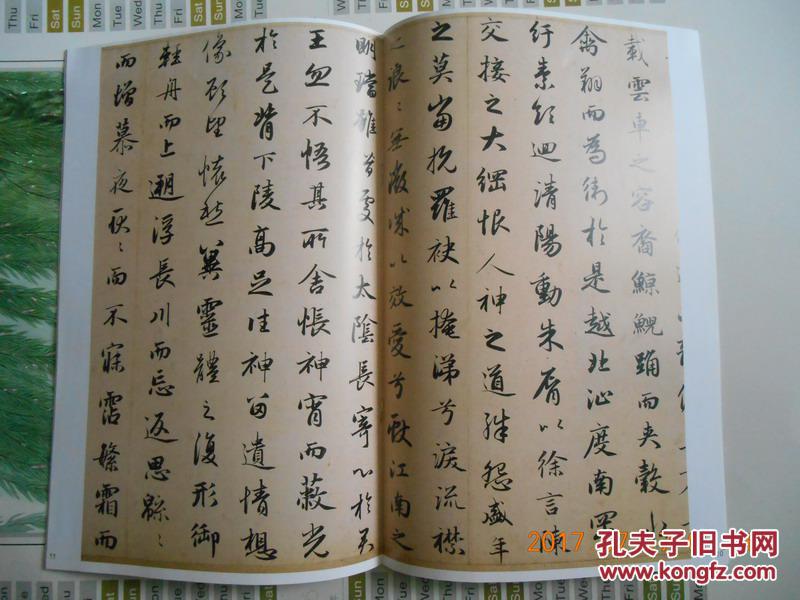 載雲車之容裔鯨鯢踊而夾轂水
禽翔而為衛於是越北沚度南岡
紆素領迴清陽動朱脣以徐言陳
交接之大綱恨人神之道殊怨盛年
之莫當抗羅袂以掩涕兮淚流襟
之浪〻無微誠以效愛兮獻江南之
明璫雖潛處於太陰長寄心於君
王忽不悟其所舍悵神宵而蔽光
於是背下陵高足往神留遺情想
像顧望懷愁冀靈體之復形御
輕舟而上遡浮長川而忘返思緜〻
而增慕夜耿〻而不寐霑繁霜而
11
Thu Fri Sat Sun Mon Tue Wed Thu Fri Sat Sun
2017
孔夫子旧书网
www.kongfz.com